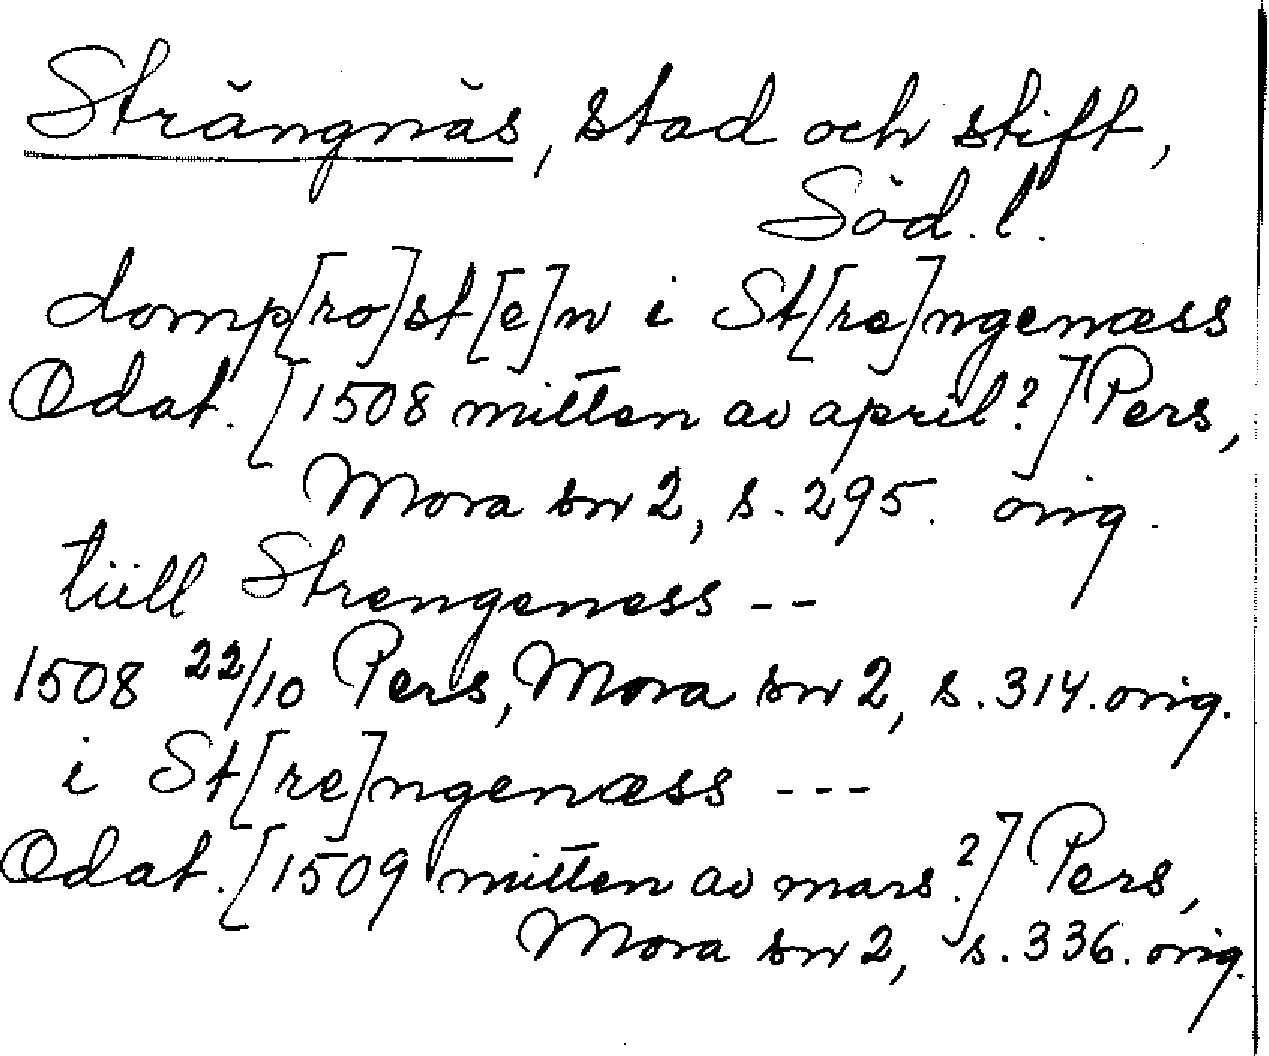 Strängnäs, stad och stift,
Söd. l.
domp[ro]st[e]n i St[re]ngenæss
Odat. [1508 mitten av april?] Pers,
Mora sn 2, s. 295. orig.
tiill Strengeness --
1508 22/10 Pers, Mora sn 2, s. 314. orig.
i St[re]ngenæss ---
Odat. [1509 mitten av mars?] Pers,
Mora sn 2, s. 336. orig.